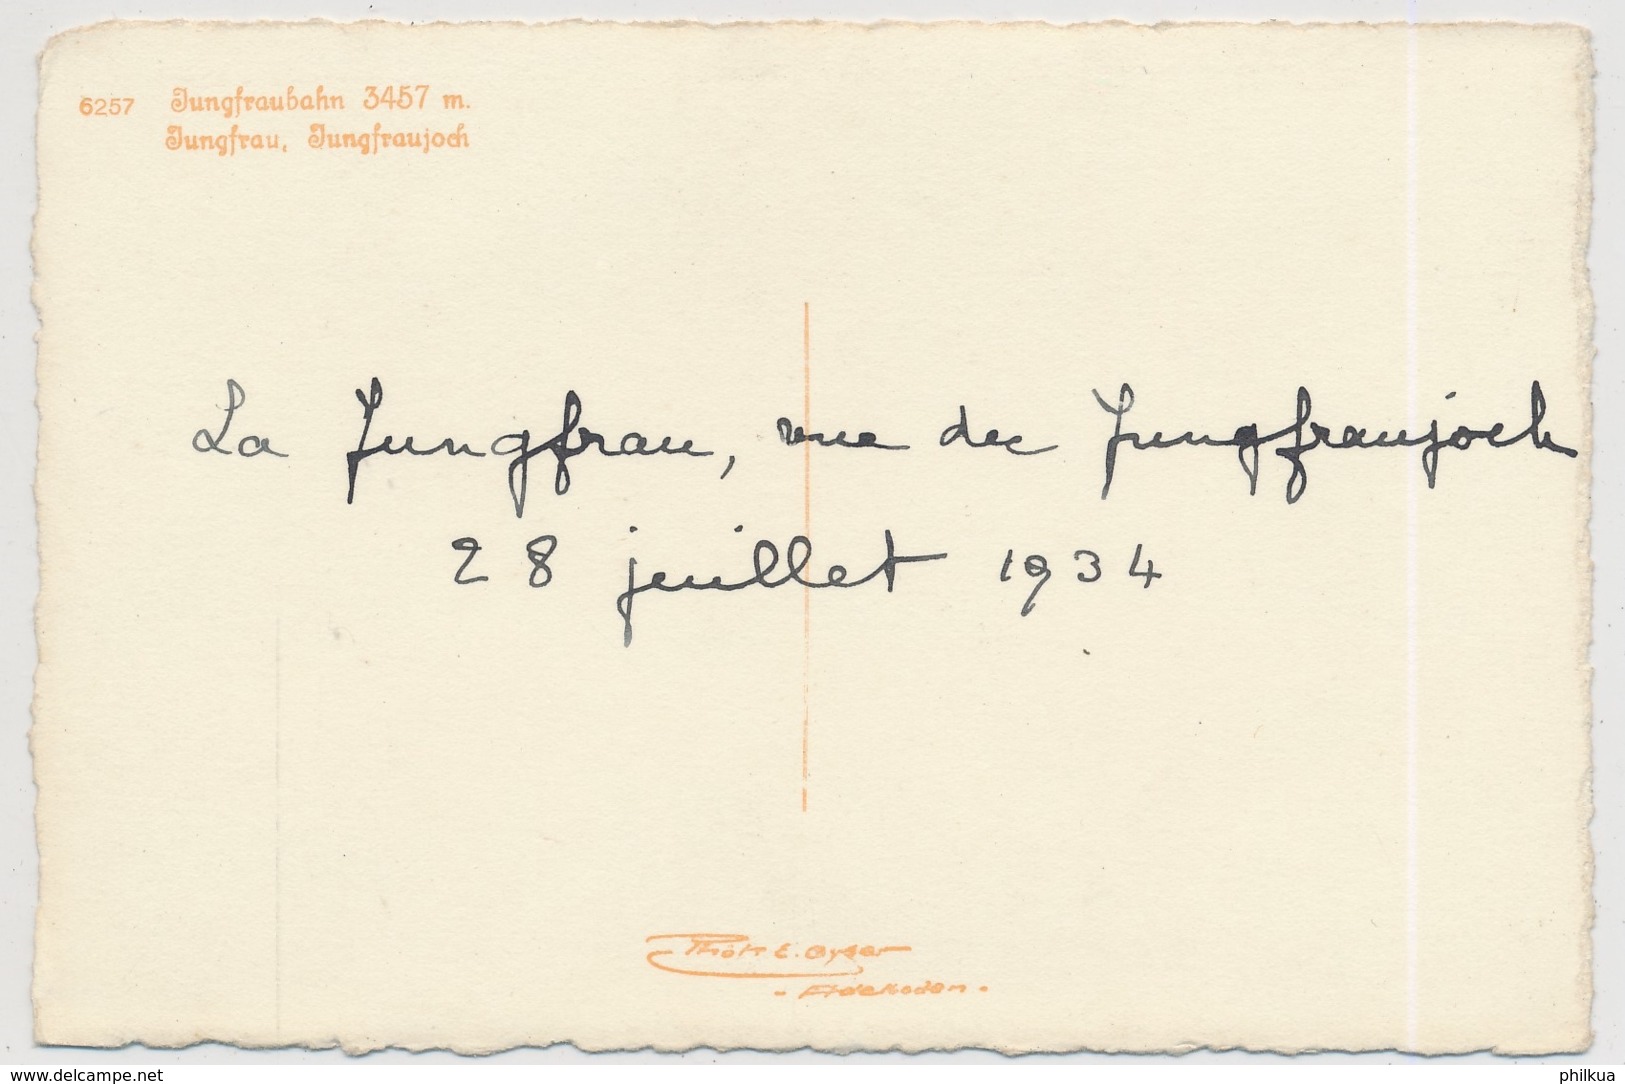 6257 Jungfraubahn 3457 m.
Jungfrau, Jungfraujoch
La Jungfrau, vue du Jungfraujoch
28 juillet 1934
Phot. E. Gyger
- Adelboden -
www.delcampe.net
philkua